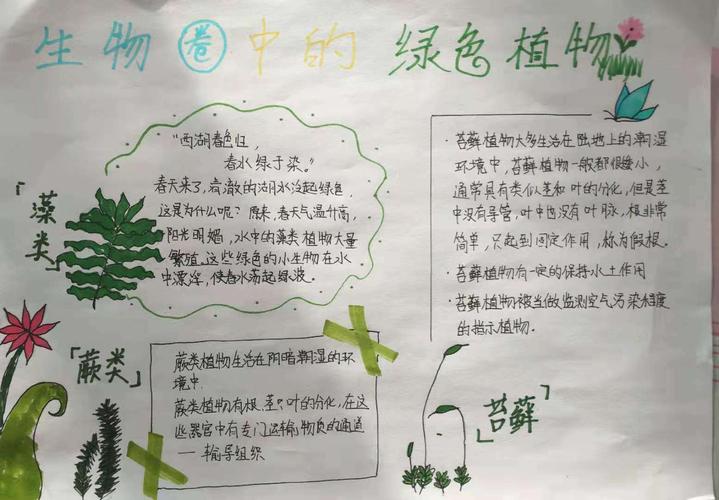 生物圈中的绿色植物
「藻类」
"西湖春色归，
春水绿于染。"
春天来了，清澈的湖水泛起绿色，
这是为什么呢？原来，春天气温升高，
阳光明媚，水中的藻类植物大量
繁殖。这些绿色的小生物在水
中漂浮，使春水荡起绿波。
·苔藓植物大多生活在陆地上的潮湿
环境中，苔藓植物一般都很矮小，
通常具有类似茎和叶的分化，但是茎
中没有导管，叶中也没有叶脉，根非常
简单，只起到固定作用，称为假根。
·苔藓植物有一定的保持水土作用
·苔藓植物被当做监测空气污染程度
的指示植物。
「蕨类」
蕨类植物生活在阴暗潮湿的环
境中.
蕨类植物有根、茎、叶的分化，在这
些器官中有专门运输物质的通道
——输导组织
「苔藓」